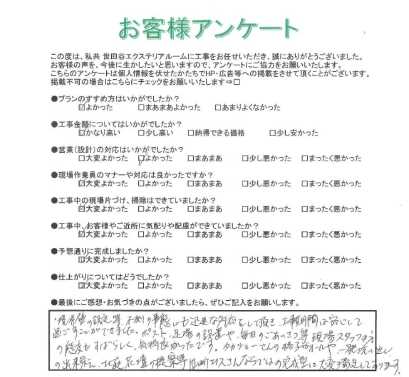 お客様アンケート
この度は、私共 世田谷エクステリアルームに工事をお任せいただき、誠にありがとうございました。
お客様の声を、今後に生かしたいと思いますので、アンケートにご協力をお願いいたします。
こちらのアンケートは個人情報を伏せたかたちでHP・広告等への掲載をさせて頂くことがございます。
掲載不可の場合はこちらにチェックをお願いいたします⇒□
●プランのすすめ方はいかがでしたか？
☑よかった □まあまあよかった □あまりよくなかった
●工事金額についてはいかがでしたか？
□かなり高い □少し高い □納得できる価格 □少し安かった
●営業(設計)の対応はいかがでしたか？
□大変よかった ☑よかった □まあまあ □少し悪かった □まったく悪かった
●現場作業員のマナーや対応は良かったですか？
☑大変よかった □よかった □まあまあ □少し悪かった □まったく悪かった
●工事中の現場片づけ、掃除はできていましたか？
☑大変よかった □よかった □まあまあ □少し悪かった □まったく悪かった
●工事中、お客様やご近所に気配りや配慮ができていましたか？
☑大変よかった □よかった □まあまあ □少し悪かった □まったく悪かった
●予想通りに完成しましたか？
☑大変よかった □よかった □まあまあ □少し悪かった □まったく悪かった
●仕上がりについてはどうでしたか？
☑大変よかった □よかった □まあまあ □少し悪かった □まったく悪かった
●最後にご感想・お気づきの点がございましたら、ぜひご記入をお願いします。
工事期間は安心して
過ごすことができました。ポスト、毎日のごあいさつ等 現場スタッフの方
の態度もすばらしく、気持良かったです。
の出来栄え、ならではの完成型に大変満足しております。